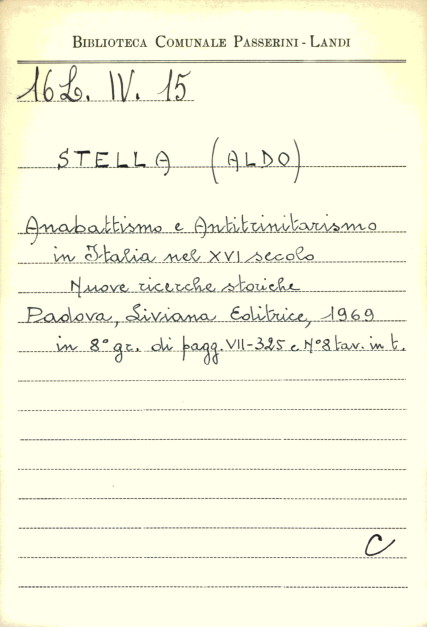 BIBLIOTECA COMUNALE PASSERINI - LANDI
16 L. IV. 15
STELLA (ALDO)
Anabattismo e Antitrinitarismo
in Italia nel XVI secolo
Nuove ricerche storiche
Padova, Liviana Editrice, 1969
in 8° gr. di pagg. VII-325 e N° 8 tav. in t.
C